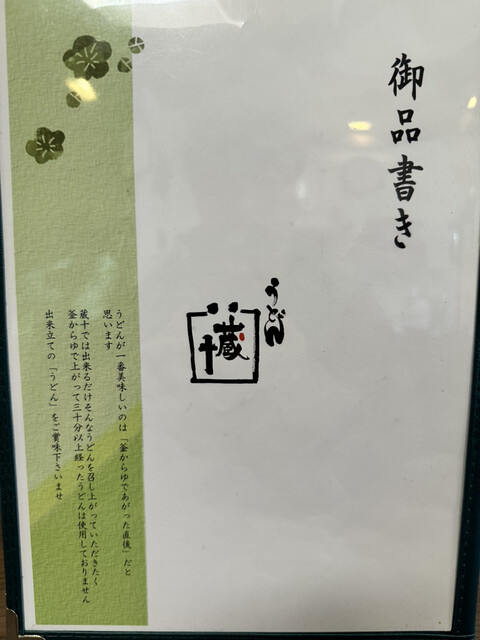 御品書き
うどん
蔵十
うどんが一番美味しいのは「釜からゆであがった直後」だと
思います
蔵十では出来るだけそんなうどんを召し上がっていただきたく
釜からゆで上がって三十分以上経ったうどんは使用しておりません
出来立ての「うどん」をご賞味下さいませ